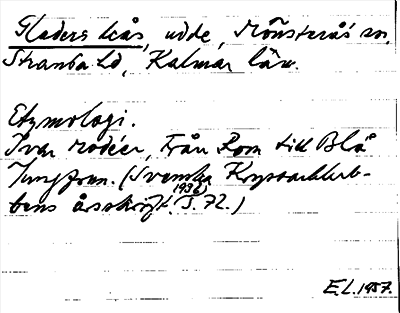 Kaders kås, udde, Mönsterås sn,
Stranda hd, Kalmar län.
Etymologi.
Ivar Modéer, Från Rom till Blå
Jungfrun. (Svenska Kryssarklub-
1936,
bens årsskrift. S. 72.)
E.L. 1957.